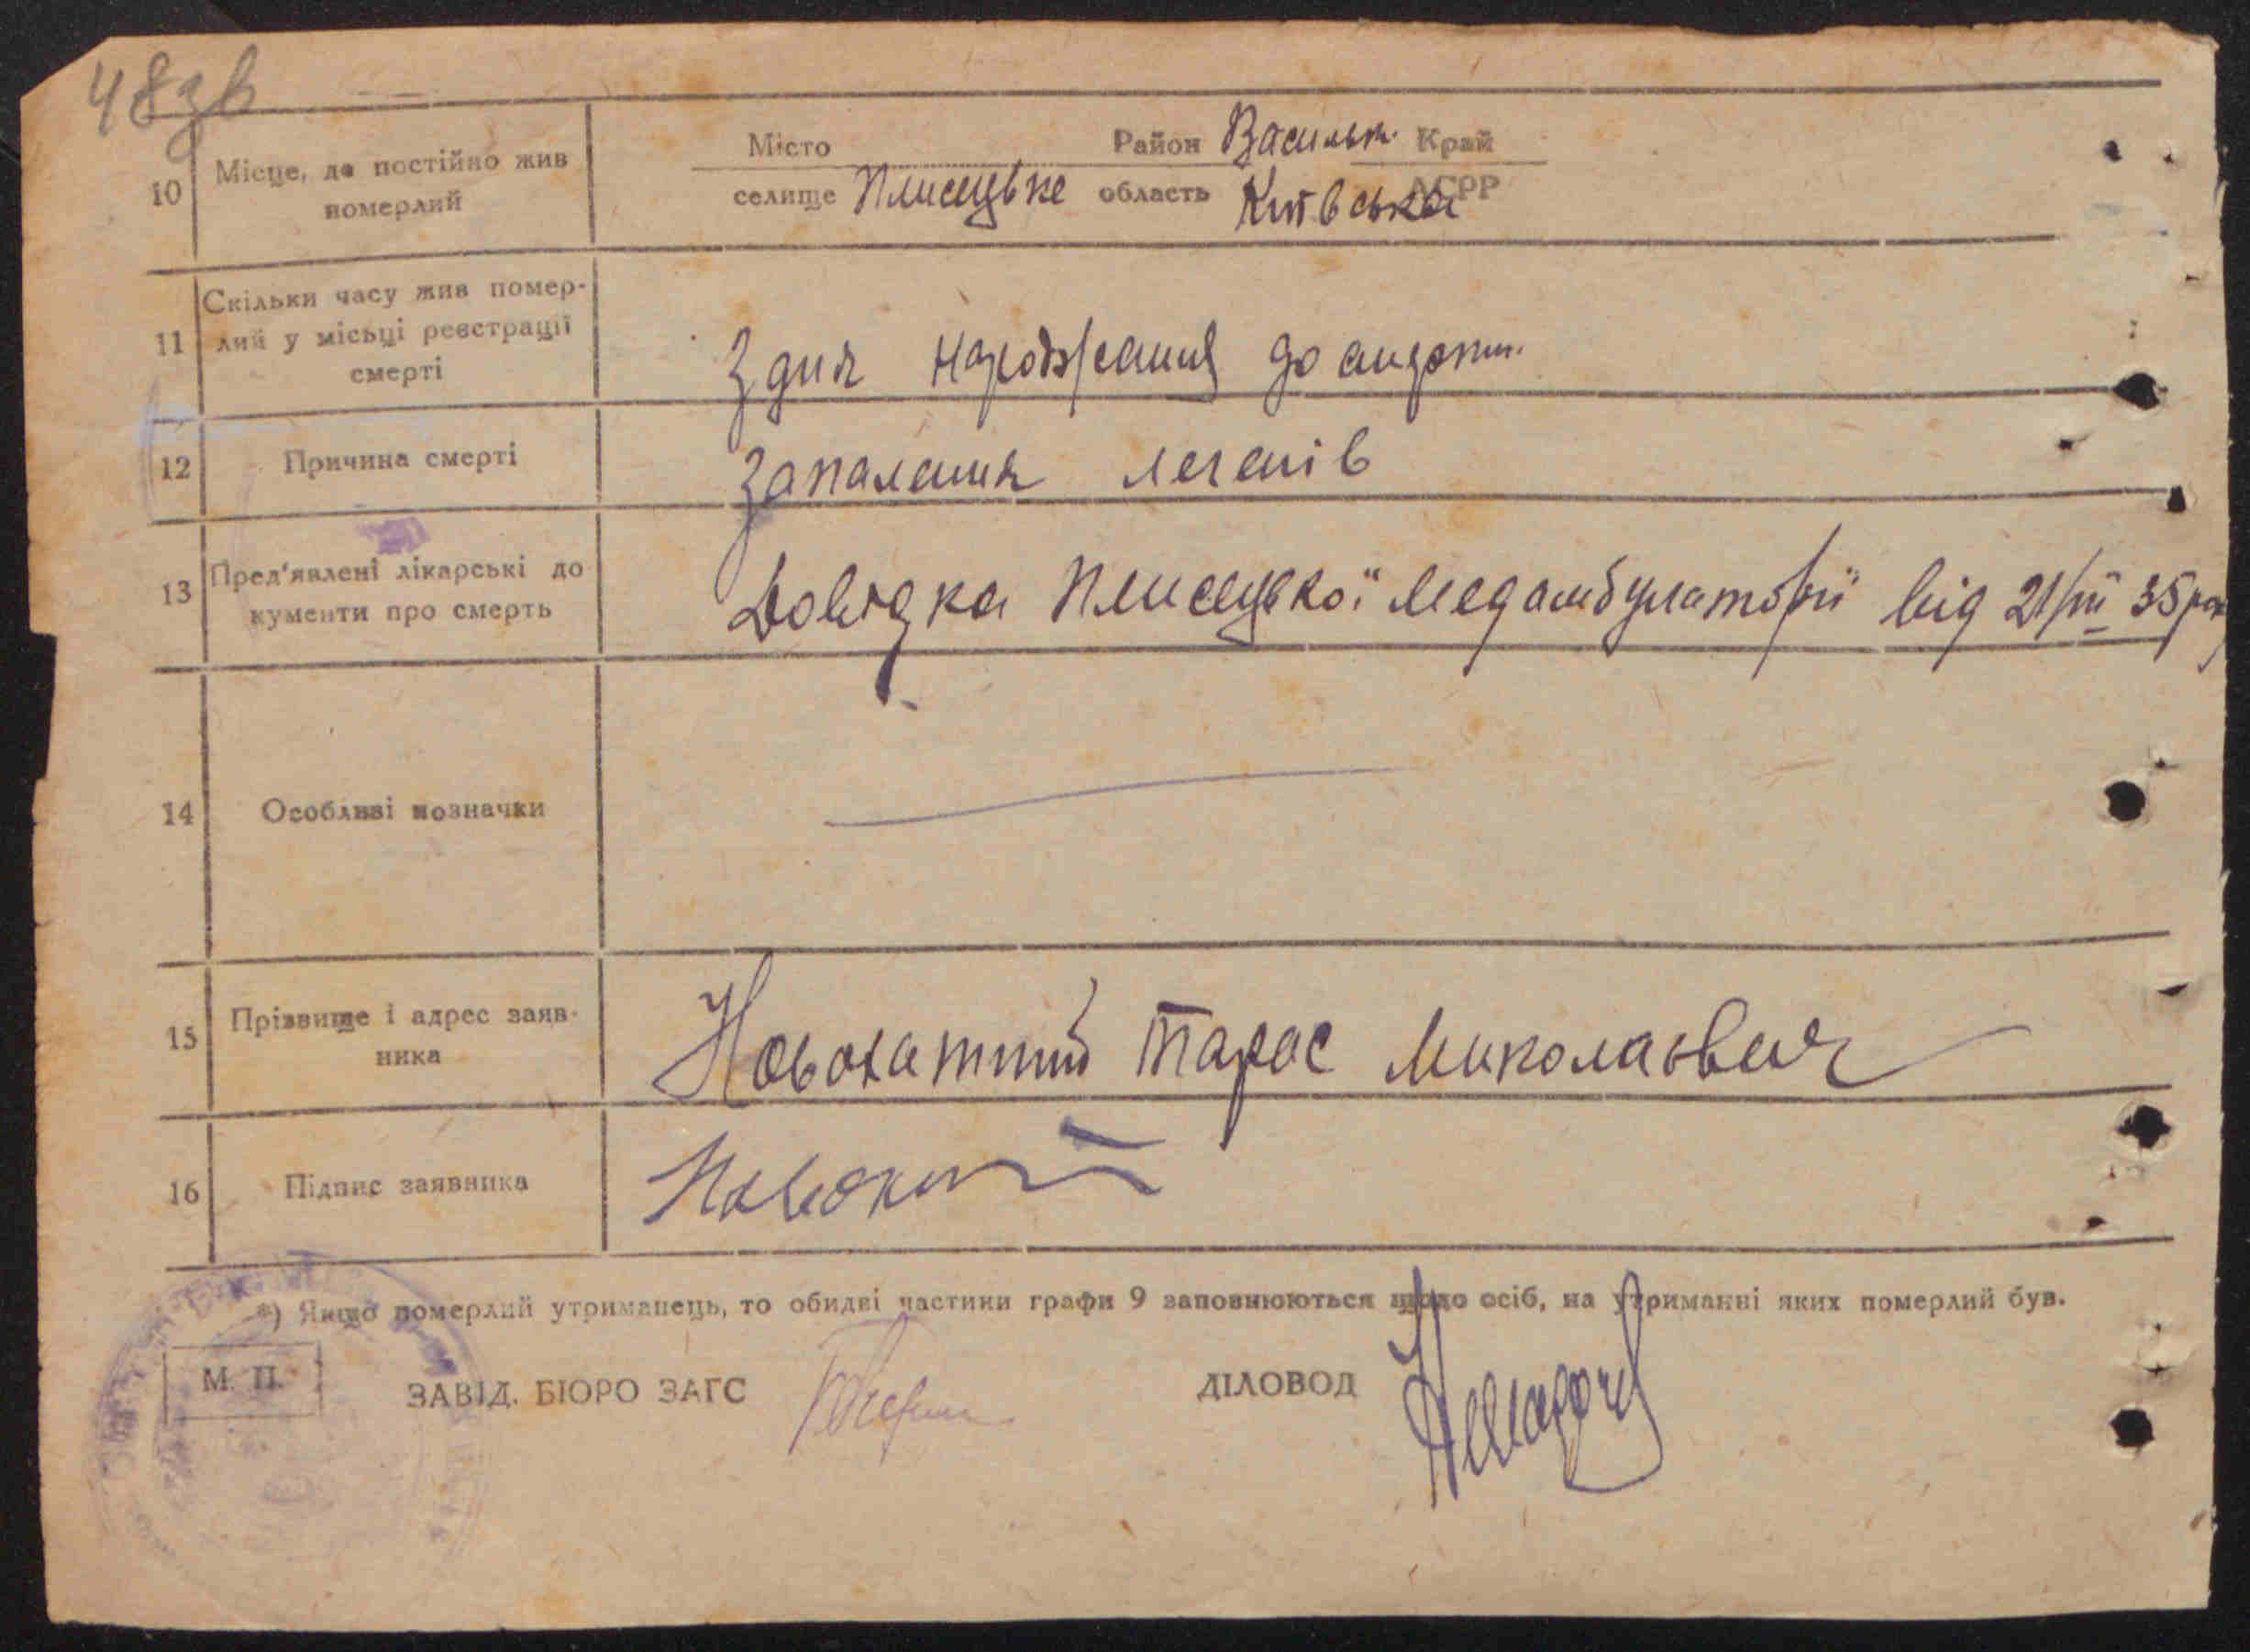 48зв
10 Місце, де постійно жив померлий
Місто Район Васильк. Край
селище Плисецьке область Київська АСРР
11 Скільки часу жив помер-
лий у місьці реєстрації
смерті
З дня народження до смерти.
12 Причина смерті
Запалення легенів
13 Пред'явлені лікарські до
кументи про смерть
Довідка Плисецької Медамбулаторії від 21/III 35 рок
14 Особливі позначки
15 Прізвище і адрес заяв-
ника
Новохатній Тарас Миколаєвич
16 Підпис заявника
*) Якщо померлий утриманець, то обидві частини графи 9 заповнюються щодо осіб, на утриманні яких померлий був.
М. П.
ЗАВІД. БЮРО ЗАГС
ДІЛОВОД